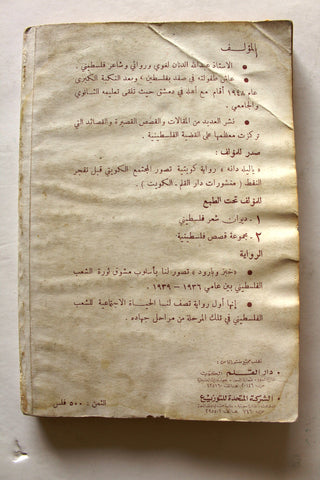 المؤلف
• الاستاذ عبدالله الدنان لغوي وروائي وشاعر فلسطيني .
• عاش طفولته في صفد بفلسطين ، وبعد النكبة الكبرى
عام ١٩٤٨ أقام مع أهله في دمشق حيث تلقى تعليمه الثانوي
والجامعي .
• نشر العديد من المقالات والقصص القصيرة والقصائد التي
تركزت معظمها على القضية الفلسطينية .
صدر للمؤلف :
« ياليل دانه » رواية كويتية تصور المجتمع الكويتي قبل تفجر
النفط ( منشورات دار القلم - الكويت ) .
للمؤلف تحت الطبع
١ . ديوان شعر فلسطيني
٢ . مجموعة قصص فلسطينية
الرواية
• « خبز وبارود » تصور لنا بأسلوب مشوق ثورة الشعب
الفلسطيني بين عامي ١٩٣٦ - ١٩٣٩ .
• إنها أول رواية تصف لنا الحياة الاجتماعية للشعب
الفلسطيني في تلك المرحلة من مراحل جهاده .
تطلب جميع منشوراتنا من :
• دار القلم
• الشركة المتحدة للتوزيع
الثمن : ٥٠٠ فلس